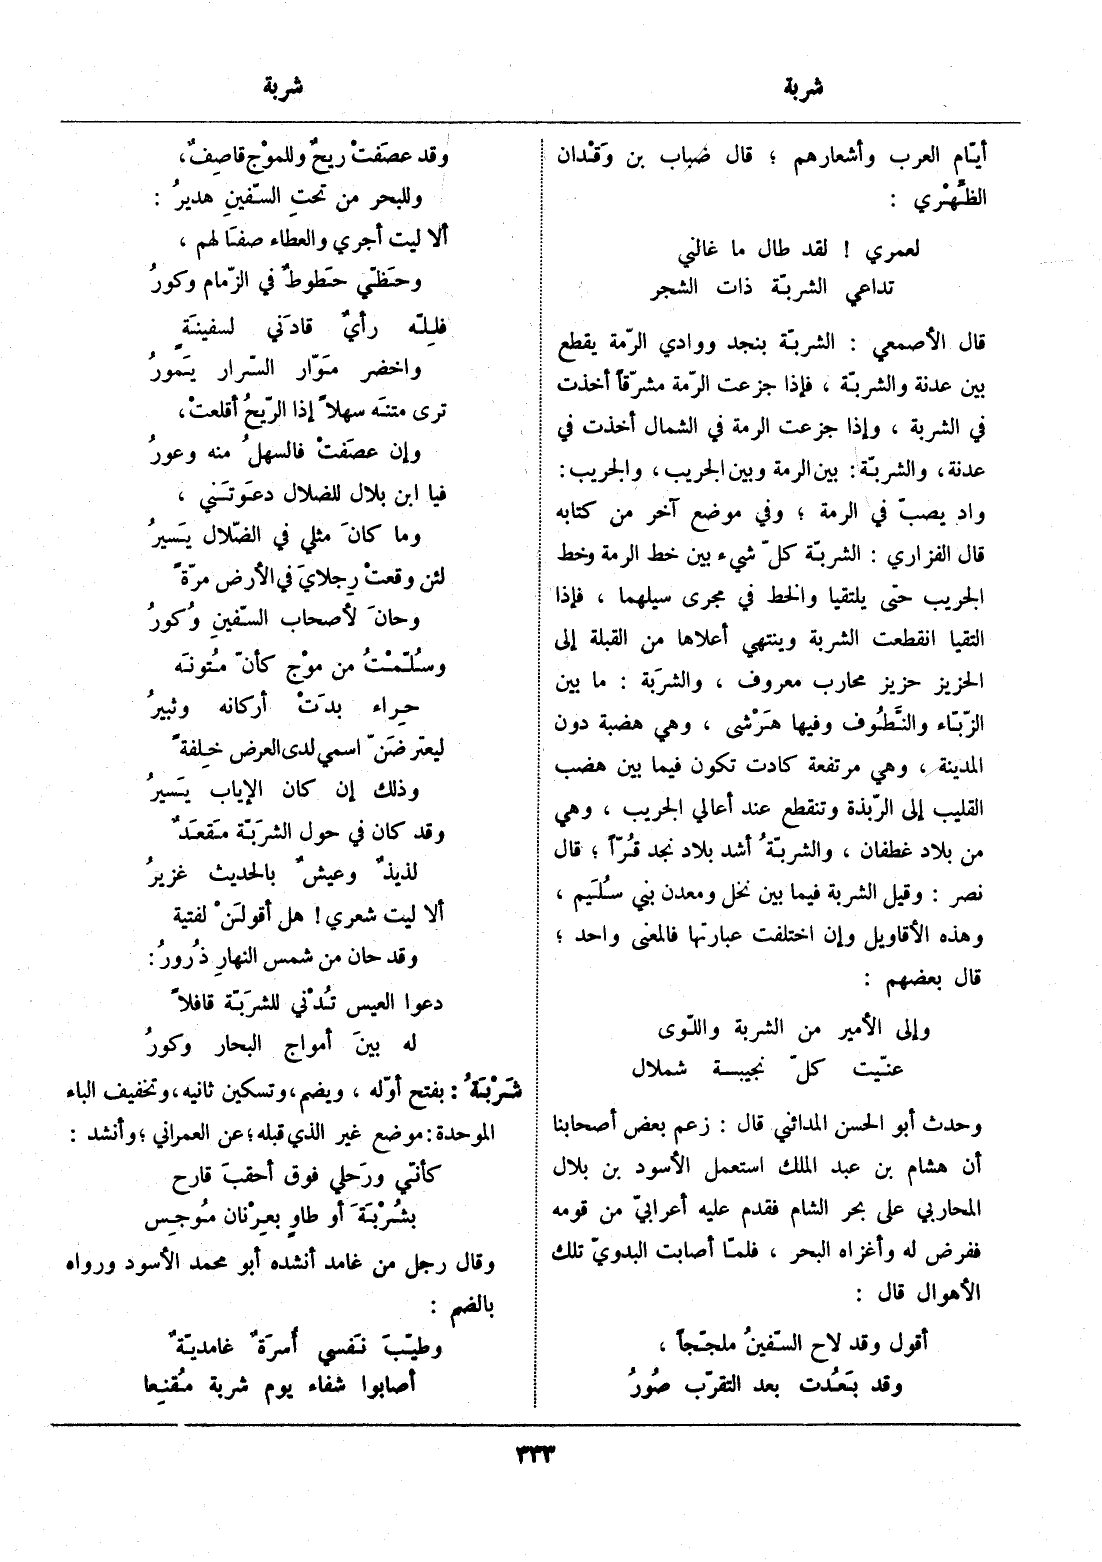 شربة
شربة
أيّام العرب وأشعارهم ؛ قال ضباب بن وَقْدان
الظَّهْري :
لعمري ! لقد طال ما غالني
تداعي الشربّة ذات الشجر
قال الأصمعي : الشربّة بنجد ووادي الرمّة يقطع
بين عدنة والشربّة ، فإذا جزعت الرمّة مشرّقاً أخذت
في الشربة ، وإذا جزعت الرمة في الشمال أخذت في
عدنة، والشربّة: بين الرمة وبين الجريب، والجريب:
واد يصبّ في الرمة ؛ وفي موضع آخر من كتابه
قال الفزاري : الشربّة كلّ شيء بين خط الرمة وخط
الجريب حتّى يلتقيا والخط في مجرى سيلهما ، فإذا
التقيا انقطعت الشربة وينتهي أعلاها من القبلة إلى
الحزيز حزيز محارب معروف ، والشرَبّة : ما بين
الزّبّاء والنَّطُوف وفيها هَرْشى ، وهي هضبة دون
المدينة ، وهي مرتفعة كادت تكون فيما بين هضب
القليب إلى الرّبذة وتنقطع عند أعالي الجريب ، وهي
من بلاد غطفان ، والشربّةُ أشد بلاد نجد قُرّاً ؛ قال
نصر : وقيل الشربة فيما بين نخل ومعدن بني سُلَيم ،
وهذه الأقاويل وإن اختلفت عبارتها فالمعنى واحد ؛
قال بعضهم :
وإلى الأمير من الشربة واللّوى
عنّيت كلّ نجيبة شملال
وحدث أبو الحسن المدائني قال : زعم بعض أصحابنا
أن هشام بن عبد الملك استعمل الأسود بن بلال
المحاربي على بحر الشام فقدم عليه أعرابيّ من قومه
ففرض له وأغزاه البحر ، فلمّا أصابت البدويّ تلك
الأهوال قال :
أقول وقد لاح السّفينُ ملجّجاً ،
وقد بَعُدت بعد التقرّب صُورُ
وقد عصَفتْ ريحٌ وللموْج قاصِفٌ،
وللبحر من تحتِ السّفينِ هديرُ :
ألا ليت أجري والعطاء صفَا لهم ،
وحَظّي حَطوطٌ في الزّمام وكورُ
فلِلّه رأيٌ قادَني لسفينَةٍ
واخضر مَوّار السّرار يَمورُ
ترى متنَه سهلاً إذا الرّيحُ أقلعتْ،
وإن عصَفتْ فالسهلُ منه وعورُ
فيا ابن بلال للضلال دعَوتَني ،
وما كانَ مثلي في الضّلال يَسيرُ
لئن وقعتْ رِجلايَ في الأرض مرّةً
وحانَ لأصحاب السّفينِ وُكورُ
وسُلّمْتُ من موْج كأنّ مُتونَه
حِراء بدَتْ أركانه وثبيرُ
ليعترِضَنّ اسمي لدى العرض خِلفةً
وذلك إن كان الإياب يَسيرُ
وقد كان في حول الشرَبّة مَقعَدٌ
لذيذٌ وعيشٌ بالحديث غزيرُ
ألا ليت شعري! هل أقولَنْ لفتية
وقد حان من شمس النهارِ ذُرورُ:
دعوا العيس تُدْني للشرَبّة قافلاً
له بينَ أمواج البحار وكورُ
شَرْبَةُ : بفتح أوّله ، ويضم، وتسكين ثانيه، وتخفيف الباء
الموحدة: موضع غير الذي قبله؛ عن العمراني ؛ وأنشد :
كأنّي ورَحلي فوق أحقبَ قارح
بشُرْبَةَ أو طاوٍ بعِرْنان مُوجِس
وقال رجل من غامد أنشده أبو محمد الأسود ورواه
بالضم :
وطيّبَ نَفسي أُسرَةٌ غامديّةٌ
أصابوا شفاء يوم شربة مُقنِعا
٣٣٣